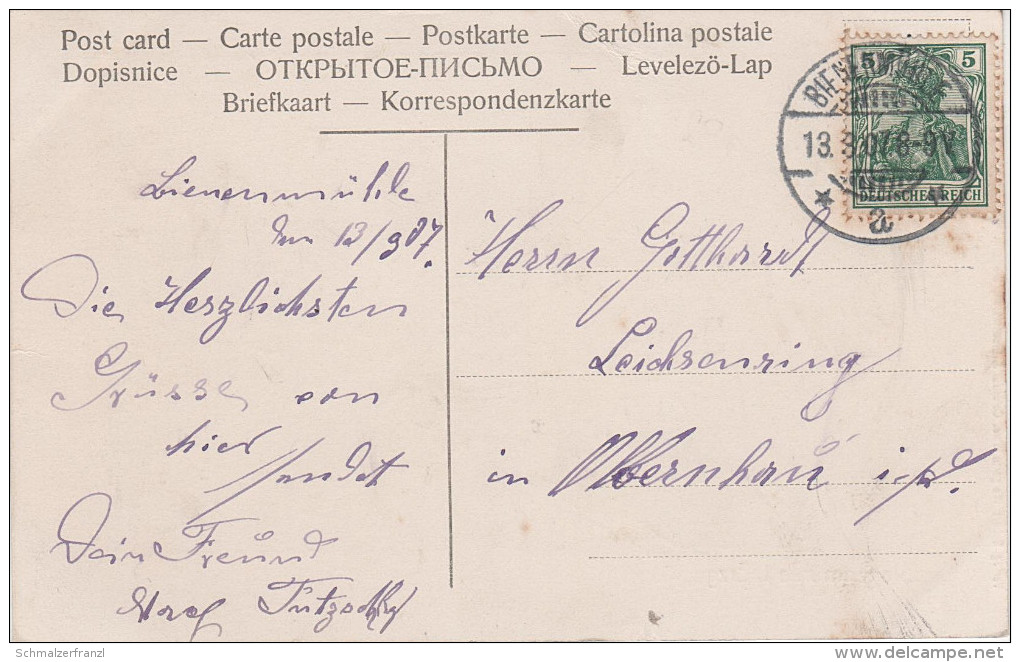 Post card — Carte postale — Postkarte — Cartolina postale
Dopisnice — ОТКРЫТОЕ-ПИСЬМО — Levelezö-Lap
Briefkaart — Korrespondenzkarte
5 5
DEUTSCHES REICH
13. 07. 8-9V
a
Bienenmühle
den 13/3 07.
Die Herzlichsten
Grüsse von
hier
sendet
Dein Freund
Herrn Gotthardt
Leichsenring
in Olbernhau i/S.
Schmalzerfranzl
delcampe.net